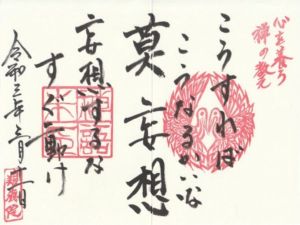 心を養う
禅の教え
こうすれば
こうなるかいな
莫妄想
妄想するな
すぐ動け
令和三年三月十一日